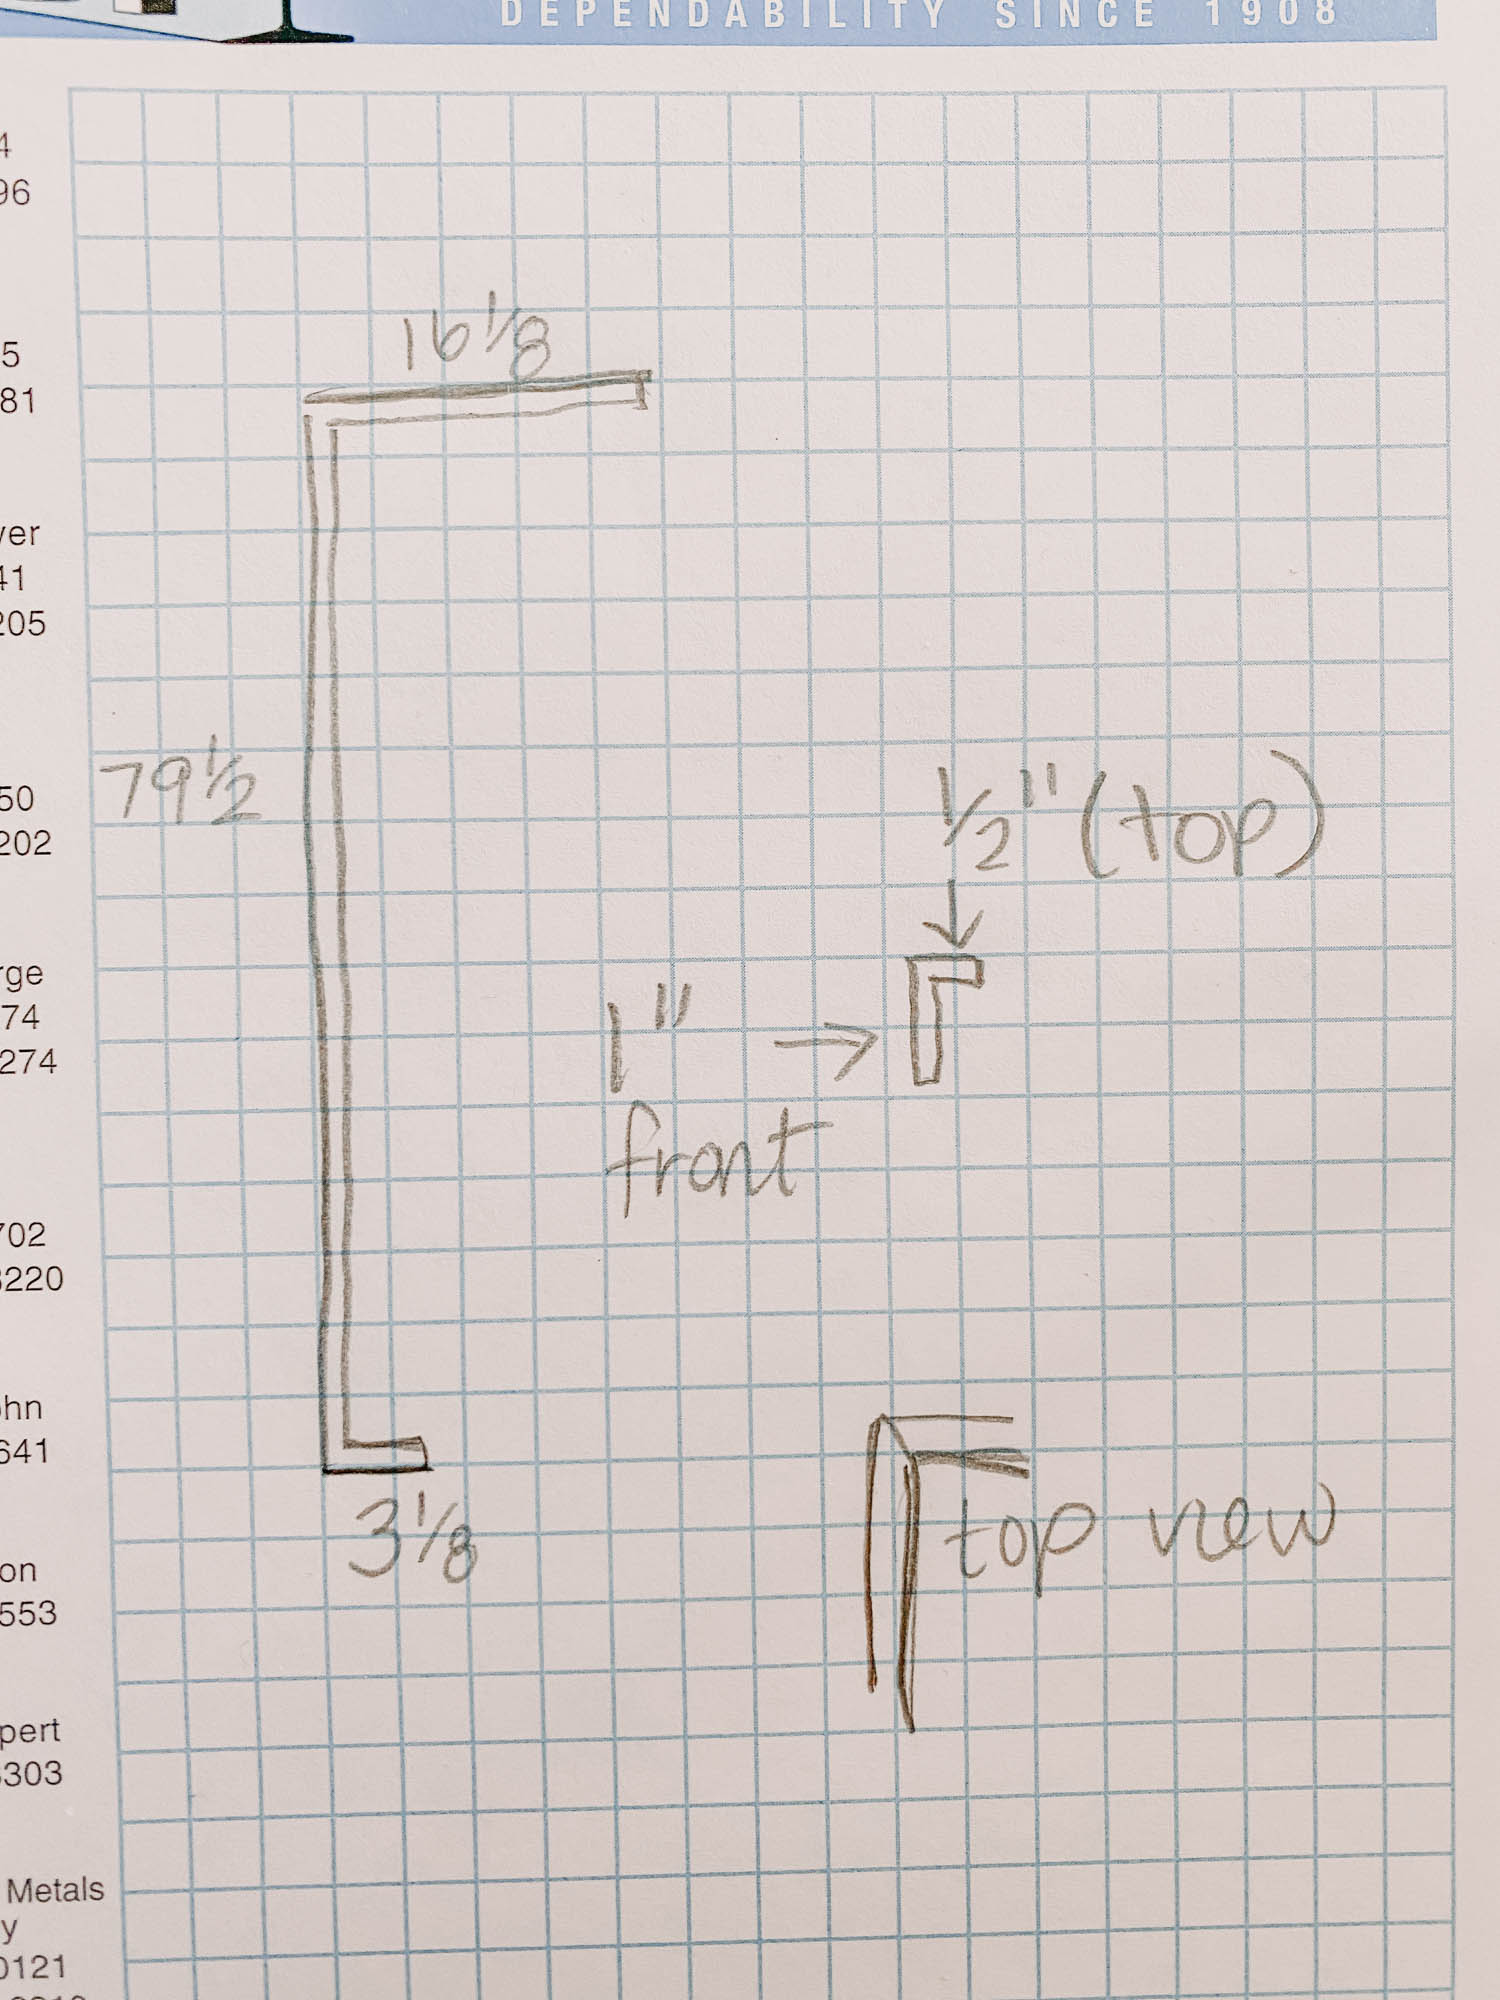 DEPENDABILITY SINCE 1908
4
96
5
81
ver
41
205
50
202
rge
74
274
702
3220
ohn
641
on
553
pert
3303
Metals
y
0121
16 1/8
79 1/2
1/2" (top)
1"
front
3 1/8
top view